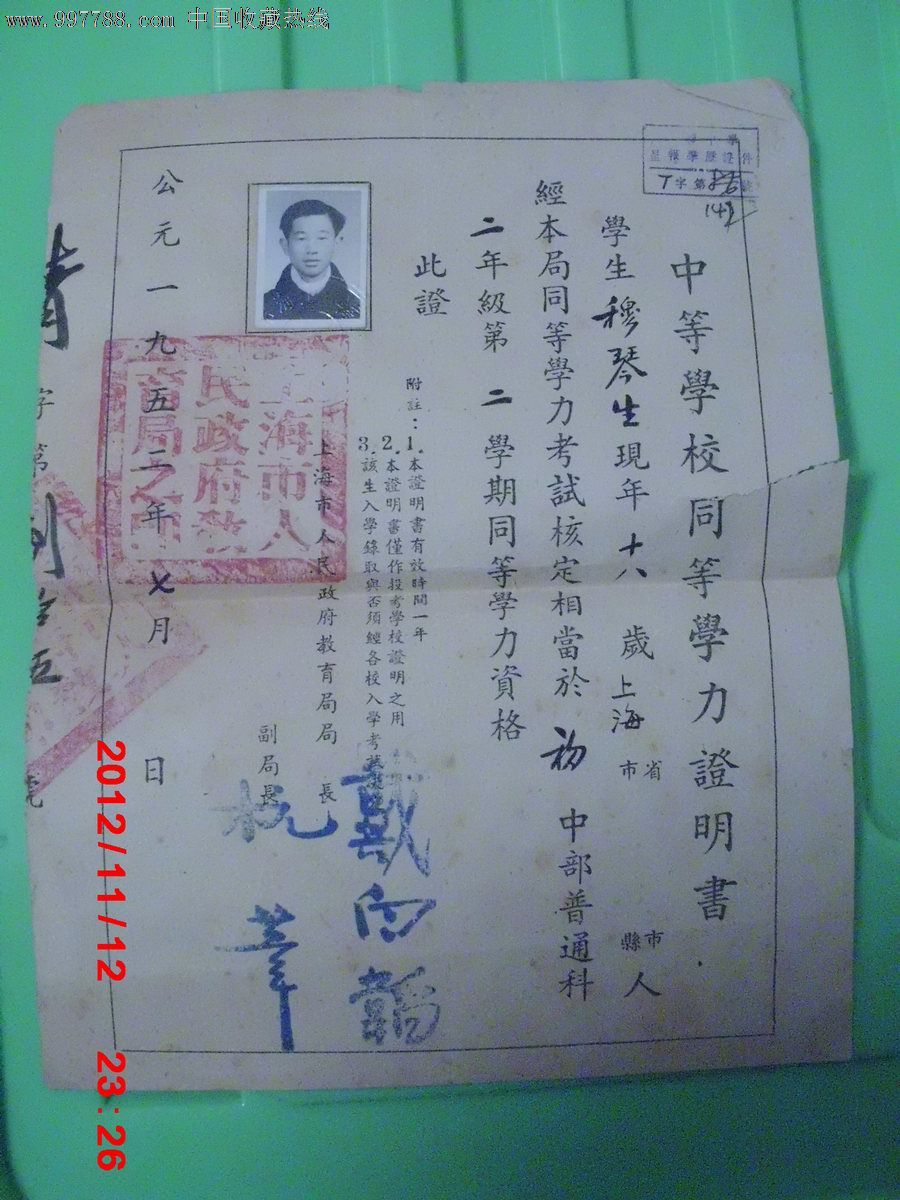 www.997788.com 中国收藏热线
學
呈報學歷證件
丁字第
149
中等學校同等學力證明書
學生穆琴生現年十八歲上海省市 市縣人
經本局同等學力考試核定相當於初中部普通科
二年級第二學期同等學力資格
此證
附註：1.本證明書有效時間一年
2.本證明書僅作投考學校證明之用
3.該生入學錄取與否須經各校入學考試
上海市人民政府教育局局長
戴白韜
副局長
杭葦
上海市人民政府教育局之印
公元一九五二年七月 日
字第 拾五號
2012/11/12 23:26